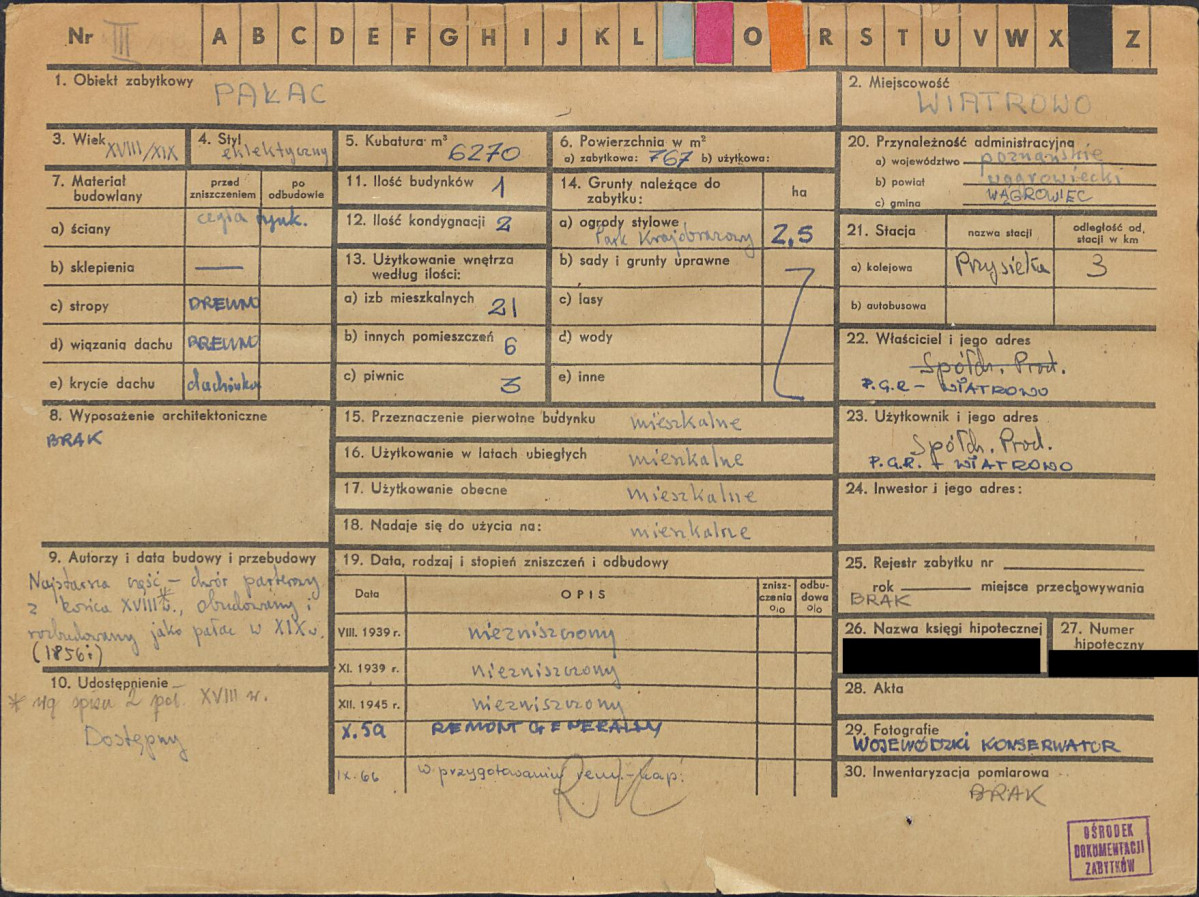 Nr III A B C D E F G H I J K L O R S T U V W X Z
1. Obiekt zabytkowy
PAŁAC
2. Miejscowość
WIATROWO
3. Wiek XVIII/XIX
4. Styl eklektyczny
5. Kubatura m³ 6270
6. Powierzchnia w m²
a) zabytkowa: 767 b) użytkowa:
7. Materiał budowlany
przed zniszczeniem
po odbudowie
a) ściany cegła tynk.
b) sklepienia —
c) stropy DREWNO
d) wiązania dachu DREWNO
e) krycie dachu dachówka
8. Wyposażenie architektoniczne
BRAK
9. Autorzy i data budowy i przebudowy
Najstarsza część – dwór parterowy
z końca XVIII* w., obudowany i
rozbudowany jako pałac w XIX w.
(1856r)
10. Udostępnienie
* wg spisu 2 poł. XVIII w.
Dostępny
11. Ilość budynków 1
12. Ilość kondygnacji 2
13. Użytkowanie wnętrza
według ilości:
a) izb mieszkalnych 21
b) innych pomieszczeń 6
c) piwnic 3
14. Grunty należące do
zabytku:
ha
a) ogrody stylowe
Park Krajobrazowy 2,5
b) sady i grunty uprawne
c) lasy
d) wody
e) inne
15. Przeznaczenie pierwotne budynku mieszkalne
16. Użytkowanie w latach ubiegłych mieszkalne
17. Użytkowanie obecne mieszkalne
18. Nadaje się do użycia na: mieszkalne
19. Data, rodzaj i stopień zniszczeń i odbudowy
Data OPIS znisz-czenia % odbu-dowa %
VIII. 1939 r. niezniszczony
XI. 1939 r. niezniszczony
XII. 1945 r. niezniszczony
X.59 REMONT GENERALNY
IX.66 w przygotowaniu rem.-kap.
20. Przynależność administracyjna
a) województwo poznańskie
b) powiat wągrowiecki
c) gmina WĄGROWIEC
21. Stacja
nazwa stacji
odległość od stacji w km
a) kolejowa Przysieka 3
b) autobusowa
22. Właściciel i jego adres
Spółdz. Prod.
P.G.R – WIATROWO
23. Użytkownik i jego adres
Spółdz. Prod.
P.G.R. – WIATROWO
24. Inwestor i jego adres:
25. Rejestr zabytku nr
rok miejsce przechowywania
BRAK
26. Nazwa księgi hipotecznej
27. Numer
hipoteczny
28. Akta
29. Fotografie
WOJEWÓDZKI KONSERWATOR
30. Inwentaryzacja pomiarowa
BRAK
OŚRODEK
DOKUMENTACJI
ZABYTKÓW